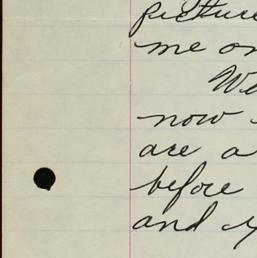 picture
me on
We
now
are a
before
and y